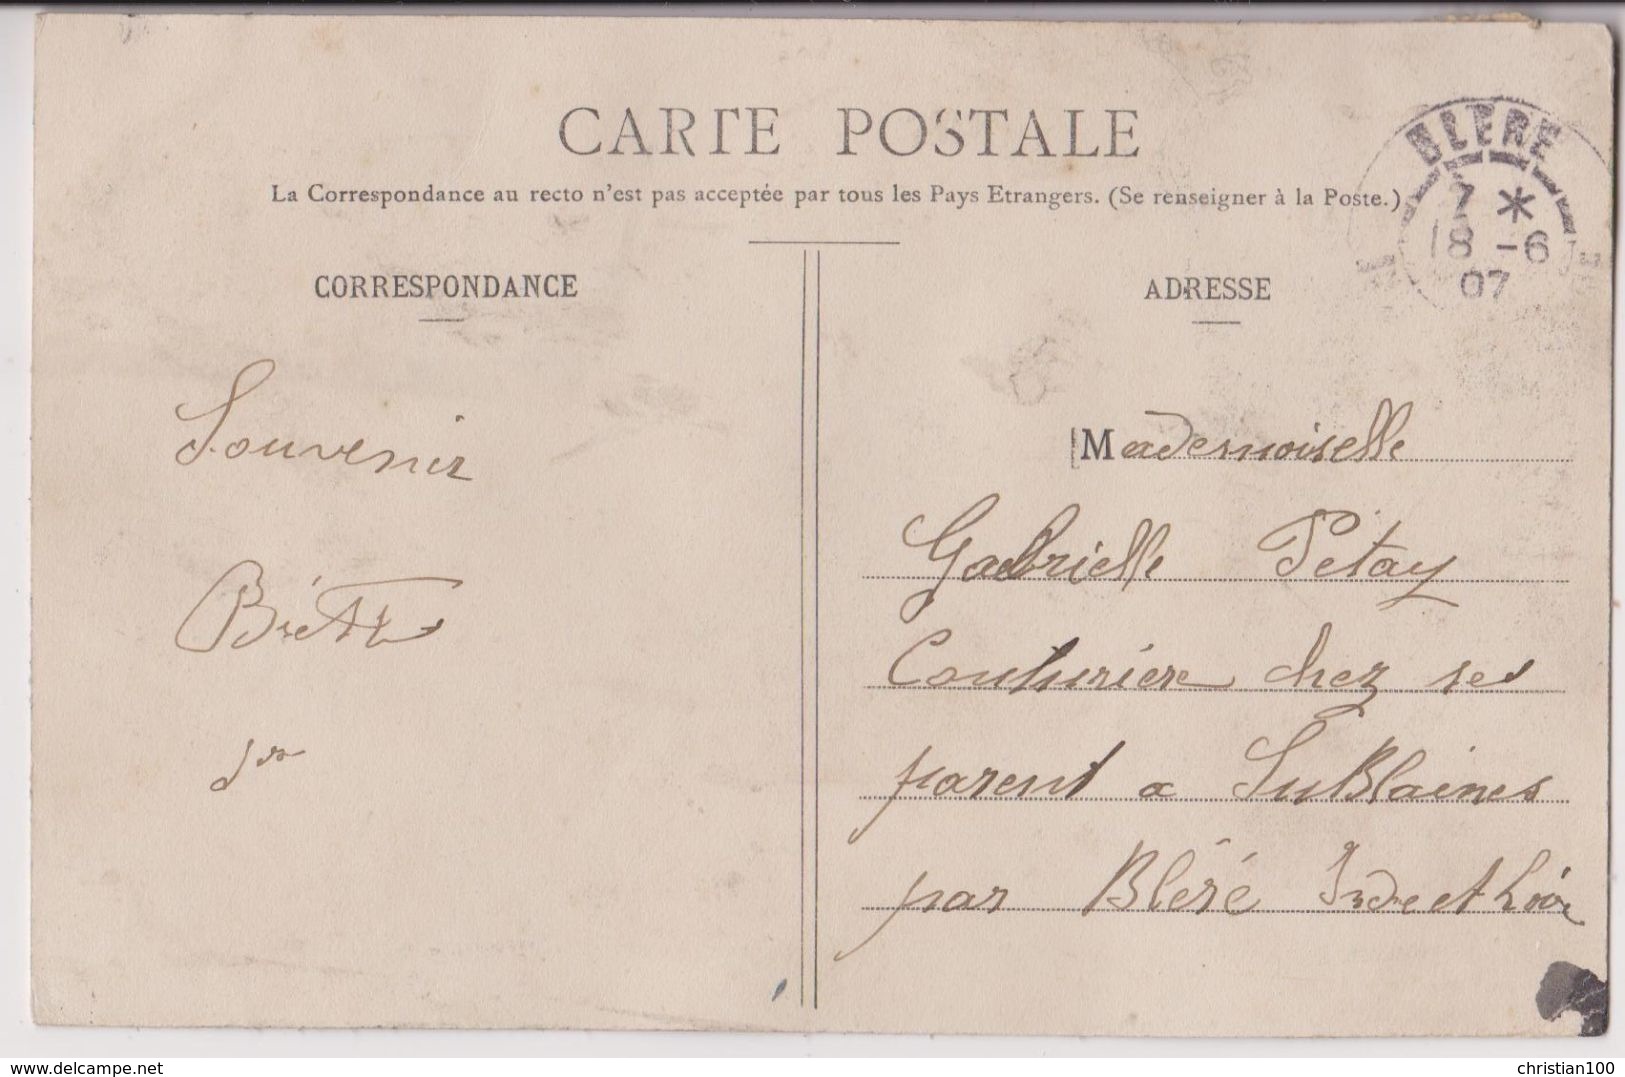 CARTE POSTALE
La Correspondance au recto n'est pas acceptée par tous les Pays Etrangers. (Se renseigner à la Poste.)
BLERE
7 *
18 -6
07
CORRESPONDANCE
Souvenir
ADRESSE
Mademoiselle
Gabrielle Petay
Couturière chez ses
parent a SuBlaines
par Bléré Indre et Loire
www.delcampe.net
christian100